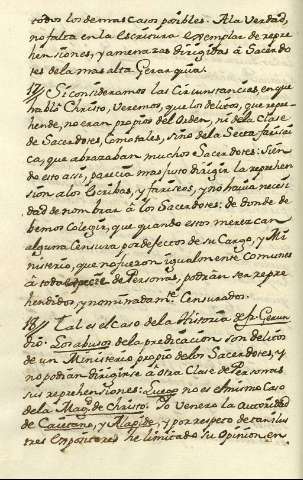 todos los demas casos posibles. A la Verdad,
no falta en la Escritura exemplar de repre-
hensiones, y amenazas dirigidas á Sacerdo-
tes de la mas alta Gerarquia.
17// Si consideramos las Circunstancias, en que
habló Christo, Veremos, que los delitos, que repre-
hende, no eran propios del Orden, ni de la Clase
de Sacerdotes, como tales, sino de la Secta farisai-
ca, que abrazaban muchos Sacerdotes: Sien-
do esto asi, parecia mas justo dirigir la reprehen-
sion a los Escribas, y fariseos, y no havia neces-
dad de nombrar á los Sacerdotes: de donde de-
bemos Colegir, que quando estos merezcan
alguna Censura por defectos de su Cargo, y Mi-
nisterio, que no fueron igualmente Comunes
á toda especie de Personas, podran ser repre-
hendidos, y nominadamte. Censurados.
18// Tal es el caso de la Historia de fr. Gerun-
dio. Los abusos de la predicacion son delitos
de un Ministerio propio de los Sacerdotes, y
no podran dirigirse á otra Clase de Personas
sus reprehensiones: Luego no es el mismo Caso
de la Mag. de Christo. Yo Venero la Autoridad
de Cayetano, y Alapide, y por respeto de tan ilus-
tres Expositores he limitado su Opinion, en